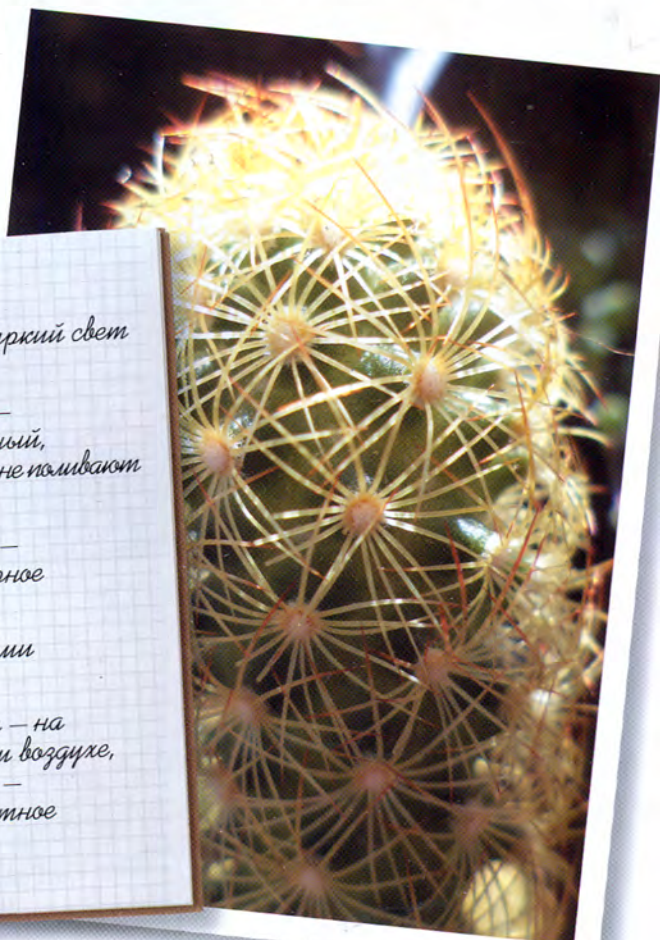 яркий свет
—
ный,
не поливают
—
рное
ми
— на
м воздухе,
—
тное